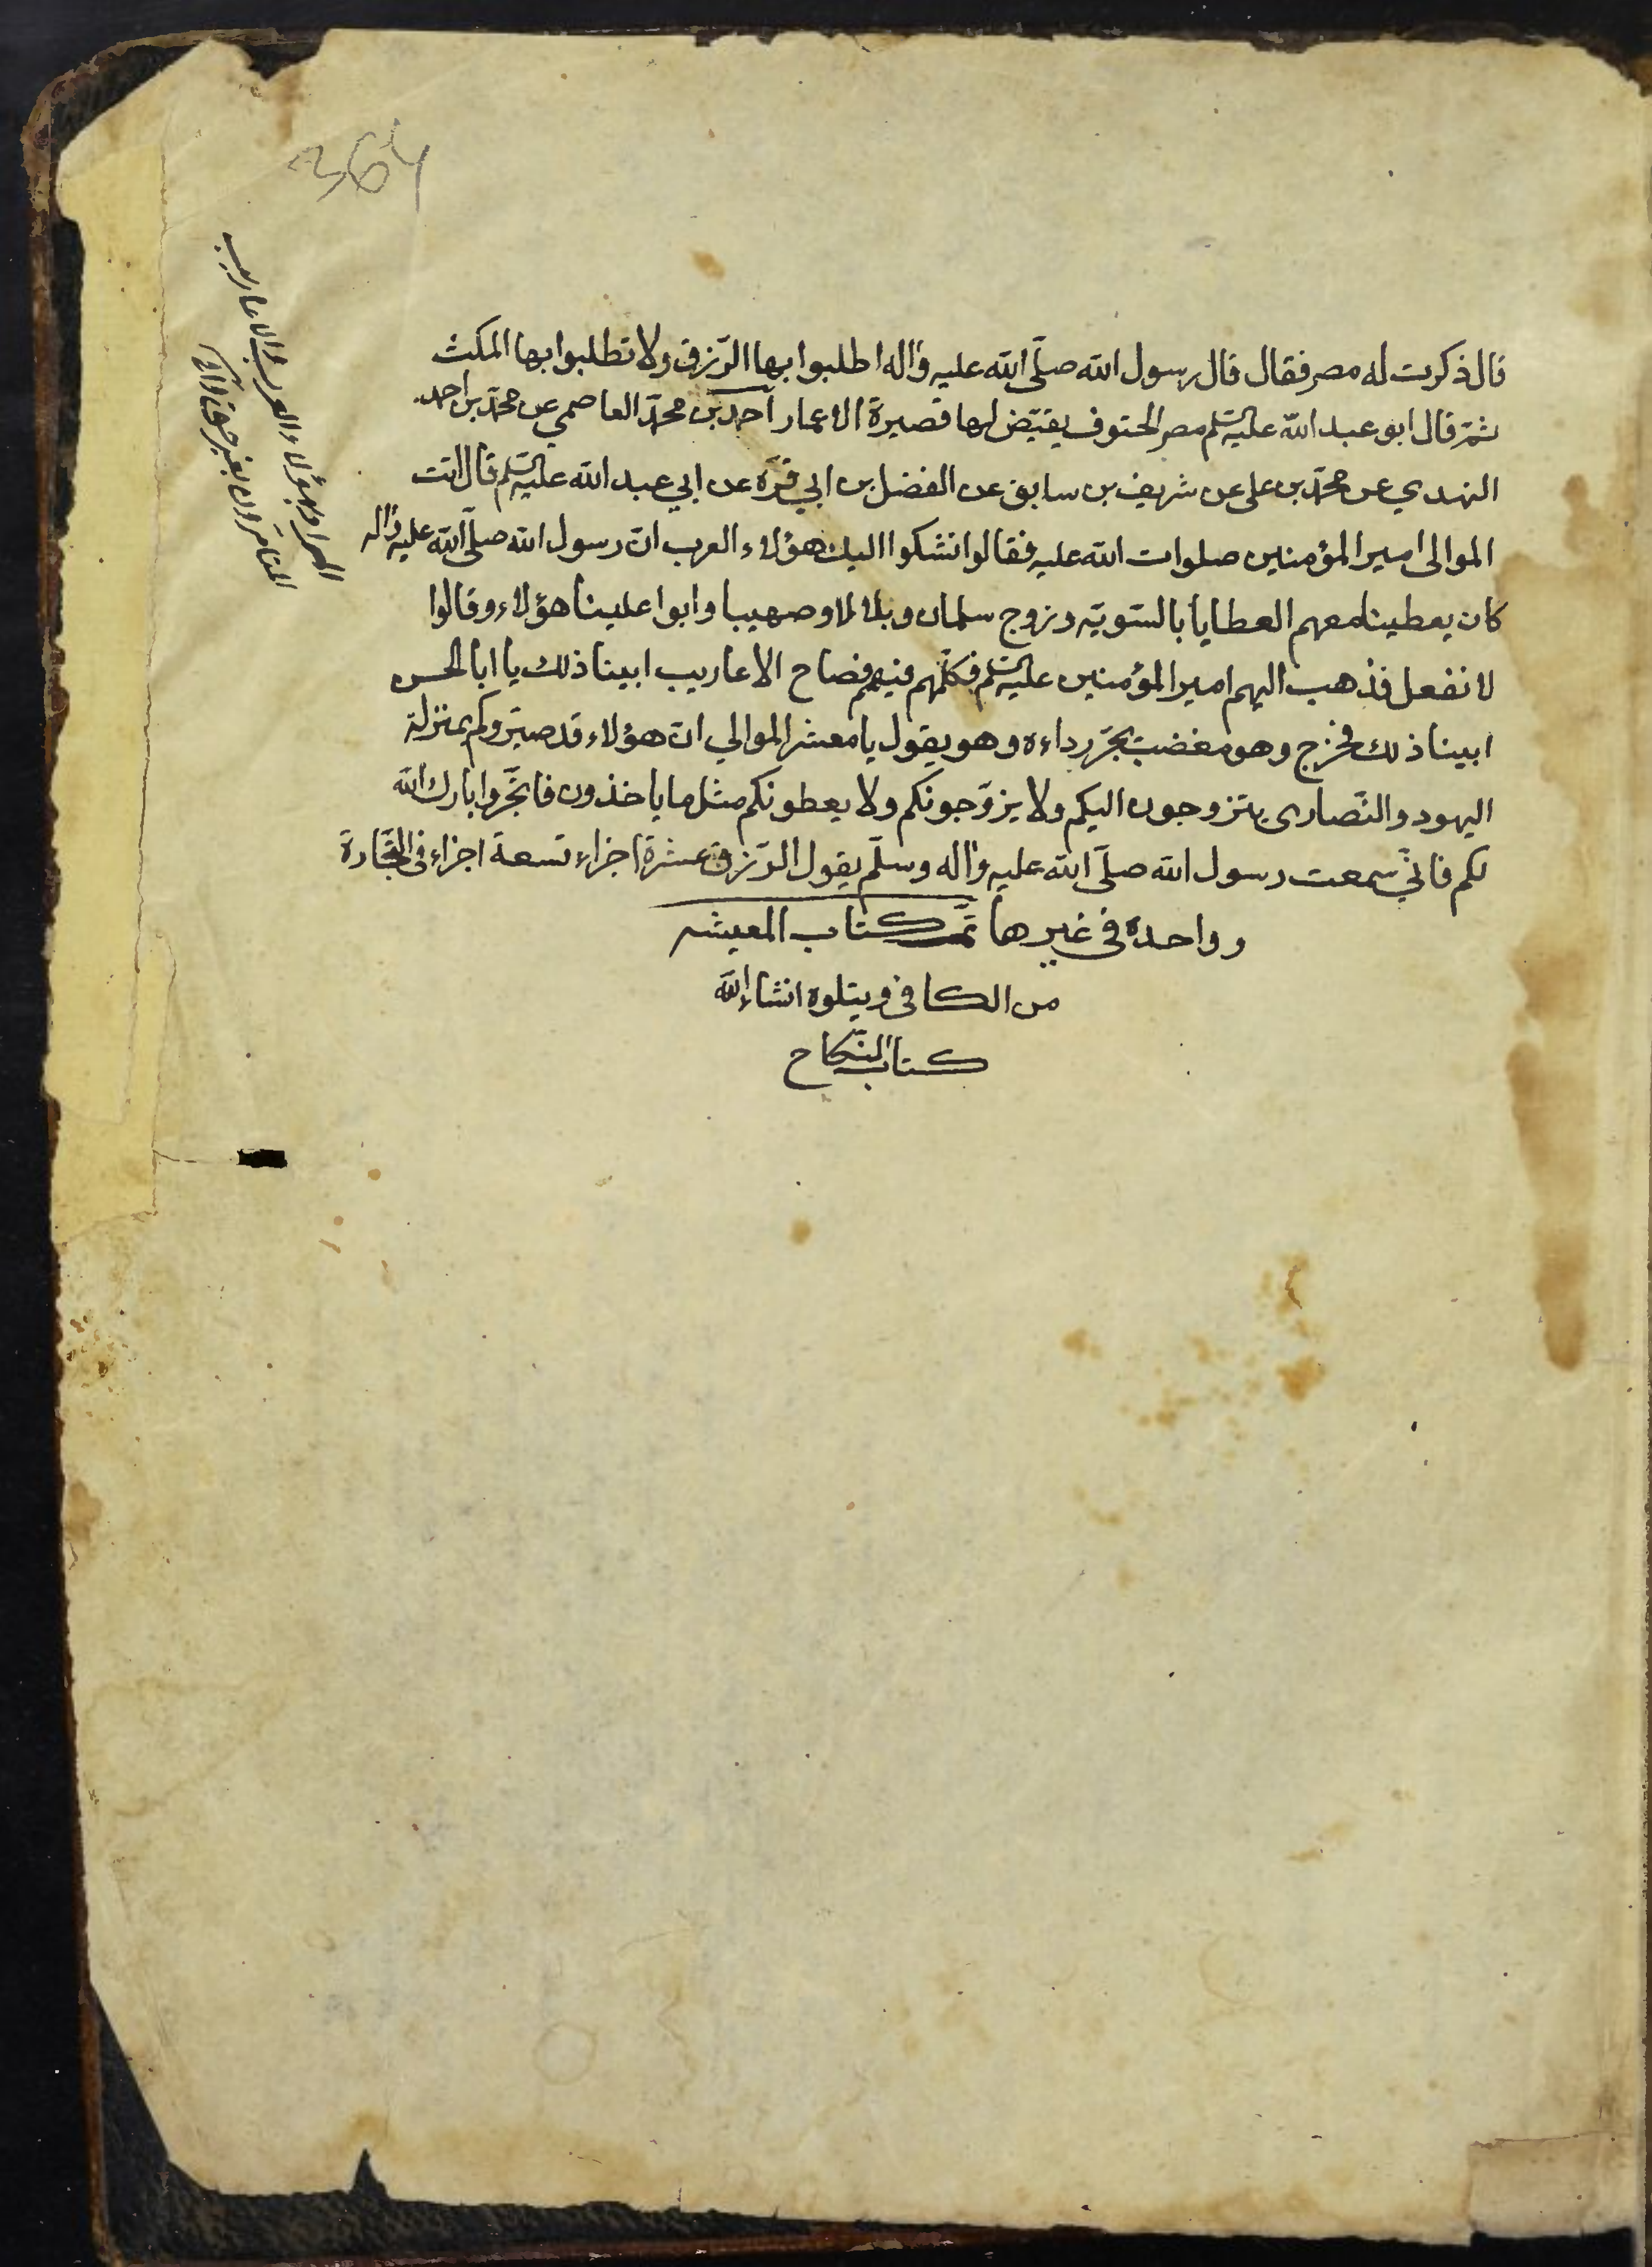 364
قال ذكرت له مصر فقال قال رسول الله صلّى الله عليه واله اطلبوا بها الرّزق ولا تطلبوا بها المكث
ثمّ قال ابو عبد الله عليه السلم مصر الحتوف يقيّض لها قصيرة الاعمار احمد بن محمّد العاصمي عن محمّد بن احمد
النهدي عن محمّد بن على عن شريف بن سابق عن الفضل بن ابي قرّة عن ابي عبد الله عليه السلم قال اتت
الموالى امير المؤمنين صلوات الله عليه فقالوا نشكوا اليك هؤلاء العرب انّ رسول الله صلّى الله عليه واله
كان يعطينا معهم العطايا بالسّويّه وزوج سلمان وبلالا وصهيبا وابوا علينا هؤلاء وقالوا
لا نفعل فذهب اليهم امير المؤمنين عليه السلم فكلّمهم فيهم فصاح الاعاريب ابينا ذلك يا ابا الحسن
ابينا ذلك فخرج وهو مغضب يجرّ رداءه وهو يقول يا معشر الموالي انّ هؤلاء قد صيّروكم بمنزلة
اليهود والنّصارى يتزوجون اليكم ولا يزوّجونكم ولا يعطونكم مثل ما ياخذون فاتّجروا بارك الله
لكم فانّي سمعت رسول الله صلّى الله عليه واله وسلّم يقول الرّزق عشرة اجزاء تسعة اجزاء فى التّجارة
وواحدة فى غيرها تمّ كتاب المعيشه
من الكافى ويتلوه انشاء الله
كتاب النّكاح
المراد بهؤلاء العرب والاعاريب